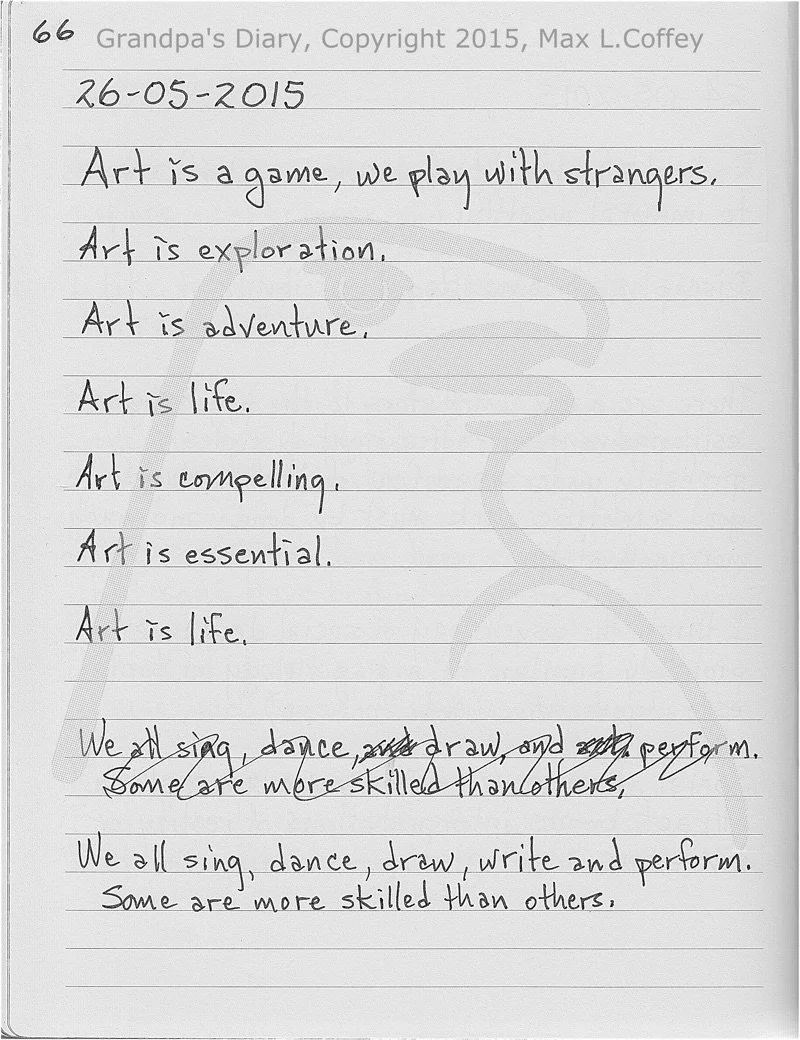 66 Grandpa's Diary, Copyright 2015, Max L.Coffey
26-05-2015
Art is a game, we play with strangers.
Art is exploration.
Art is adventure.
Art is life.
Art is compelling.
Art is essential.
Art is life.
We all sing, dance, draw, and perform.
Some are more skilled than others.
We all sing, dance, draw, write and perform.
Some are more skilled than others.